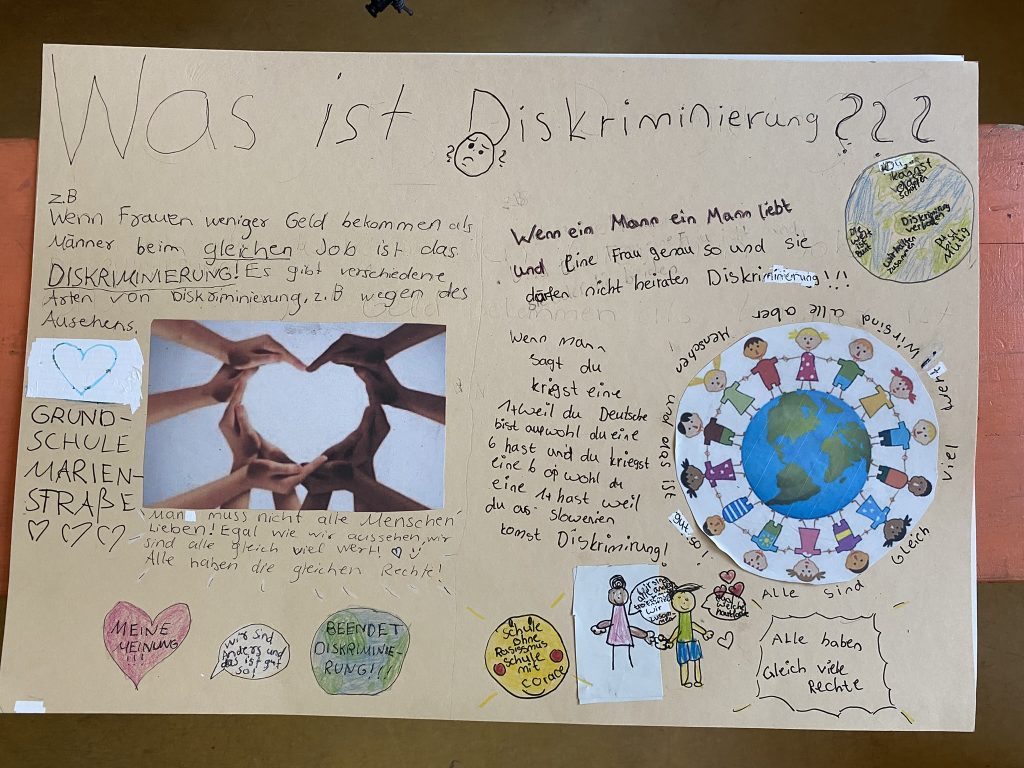 Was ist Diskriminierung???
z.B
Wenn Frauen weniger Geld bekommen als
Männer beim gleichen Job ist das
DISKRIMINIERUNG! Es gibt verschiedene
Arten von Diskriminierung, z.B wegen des
Aussehens.
GRUND-
SCHULE
MARIEN-
STRAßE
Man muss nicht alle Menschen
Lieben! Egal wie wir aussehen, wir
sind alle gleich viel wert!
Alle haben die gleichen Rechte!
MEINE
MEINUNG
!!!
Wir sind
Anders und
das ist gut
so!
BEENDET
DISKRIMINIE-
RUNG!!!
Wenn ein Mann ein Mann liebt
und eine Frau genau so und sie
dürfen nicht heiraten Diskriminierung!!!
Wenn Mann
sagt du
kriegst eine
1+ weil du Deutsche
bist auwohl du eine
6 hast und du kriegst
eine 6 opwohl du
eine 1+ hast weil
du aus Slowenien
komst Diskrimirung!
verboten
Wir sind alle aber
Menschen
und das ist
gut so!
Alle sind
Gleich
viel
wert!
Schule
ohne
Rassismus
schule
mit
corace
Wir sind
alle anders
Wir
Egal
welche
hautfarbe
Alle haben
Gleich viele
Rechte